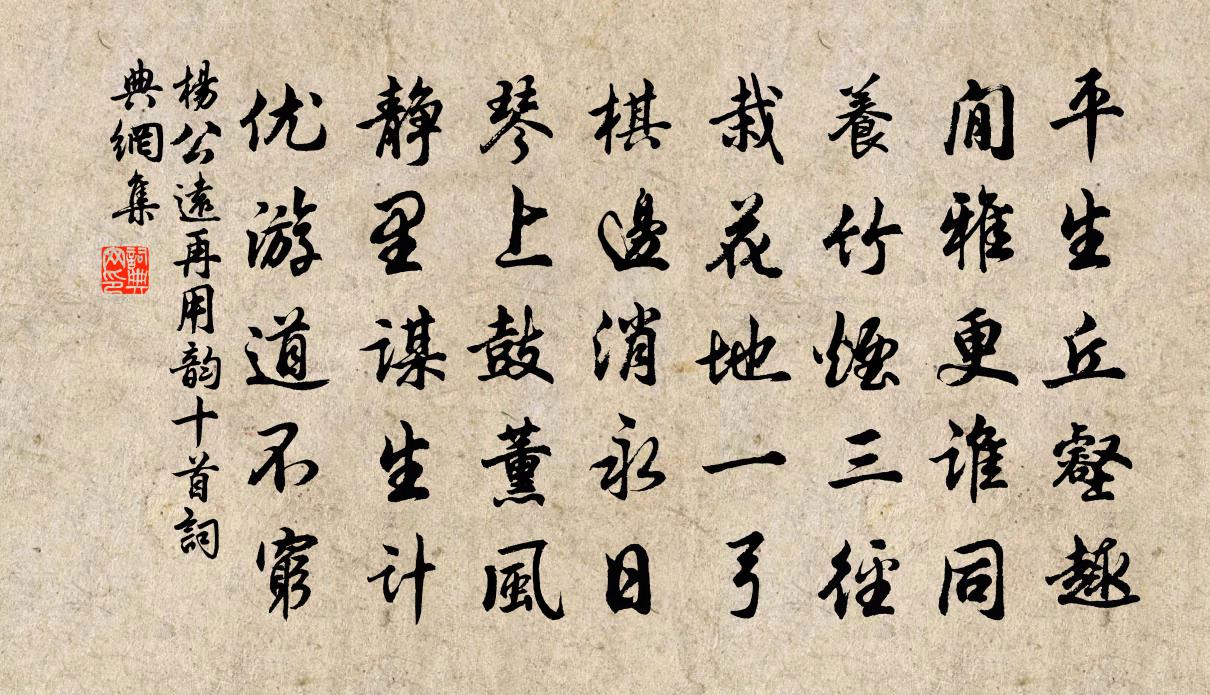 平生丘壑趣
閒雅更谁同
養竹煙三徑
栽花地一弓
棋邊消永日
琴上鼓薰風
静里謀生计
优游道不窮
楊公遠再用韵十首詞
典網集
詞典
网印